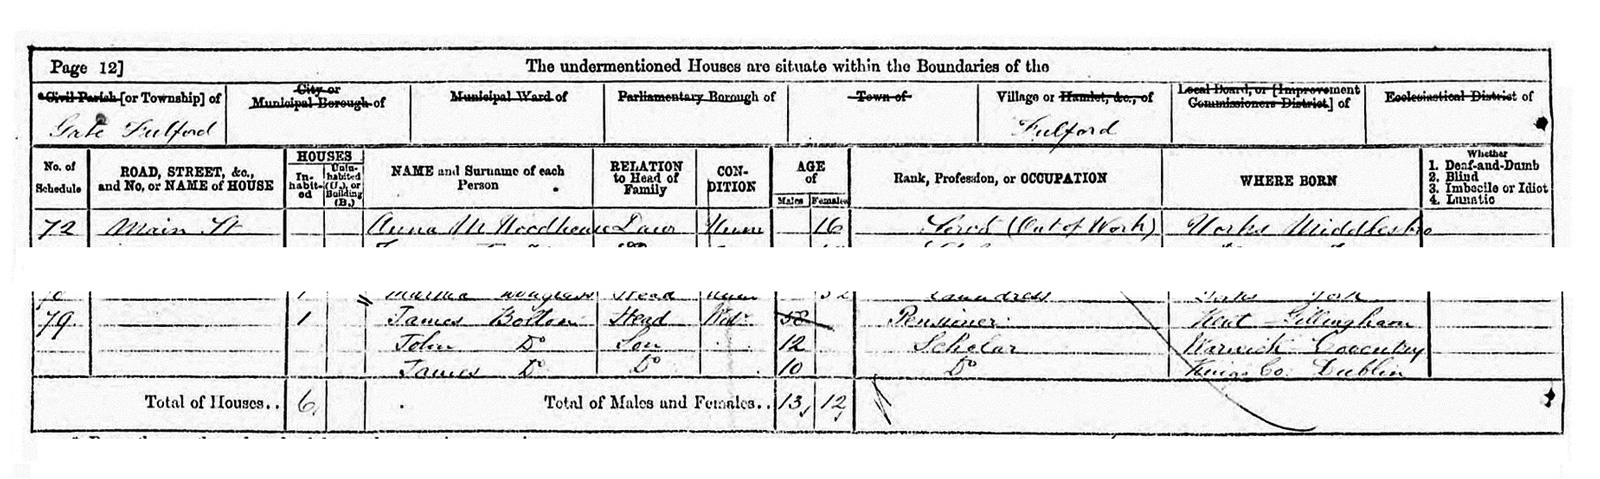 Page 12]
The undermentioned Houses are situate within the Boundaries of the
Civil Parish [or Township] of
City or Municipal Borough of
Municipal Ward of
Parliamentary Borough of
Town of
Village or Hamlet, &c., of
Local Board, or [Improvement Commissioners District] of
Ecclesiastical District of
Gate Fulford
Fulford
No. of Schedule
ROAD, STREET, &c., and No. or NAME of HOUSE
HOUSES
Inhabited
Uninhabited (U.), or Building (B.)
NAME and Surname of each Person
RELATION to Head of Family
CONDITION
AGE of
Males Females
Rank, Profession, or OCCUPATION
WHERE BORN
Whether
1. Deaf-and-Dumb
2. Blind
3. Imbecile or Idiot
4. Lunatic
72 Main St Anna M Woodhouse Daur Unm 16 Servt (Out of Work) Yorks Middlesbro
1 Martha Douglass Head 32 Laundress Yorks York
79 1 James Bolton Head Widr 58 Pensioner Kent Gillingham
John Do Son 12 Scholar Warwick Coventry
James Do Do 10 Do Kings Co. Dublin
Total of Houses.. 6 Total of Males and Females.. 13 12